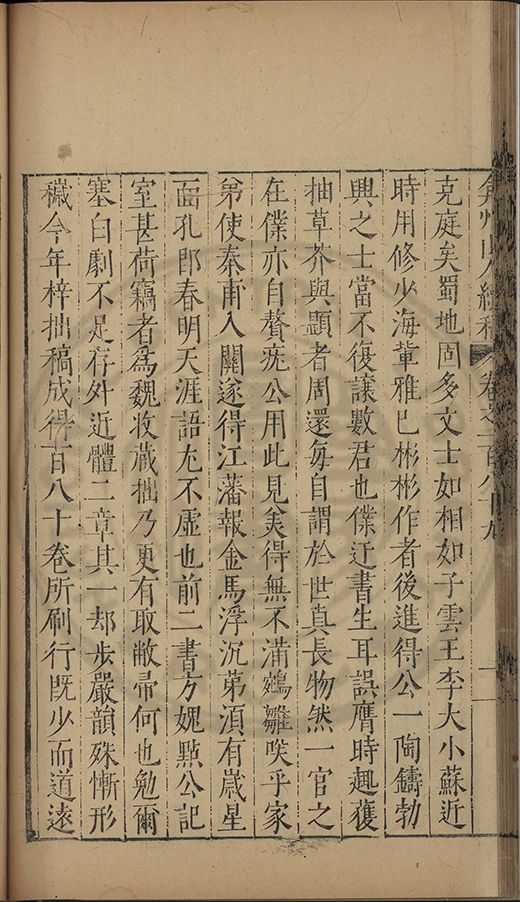 弇州山人續稿 卷之一百八十九
克庭矣蜀地固多文士如相如子雲王李大小蘇近
時用修少海輩雅已彬彬作者後進得公一陶鑄勃
興之士當不復讓數君也僕迂書生耳誤膺時趣獲
抽草芥與顯者周還每自謂於世真長物然一官之
在僕亦自贅疣公用此見羙得無不滿鵷雛咲乎家
弟使秦甫入關遂得江藩報金馬浮沉苐湏有嵗星
面孔郎春明天涯語尤不虛也前二書方媿點公記
室甚荷竊者爲魏收藏拙乃更有取敝帚何也勉爾
塞白劇不足存外近體二章其一却步嚴韻殊慚形
穢今年梓拙稿成得一百八十卷所刷行既少而道遠